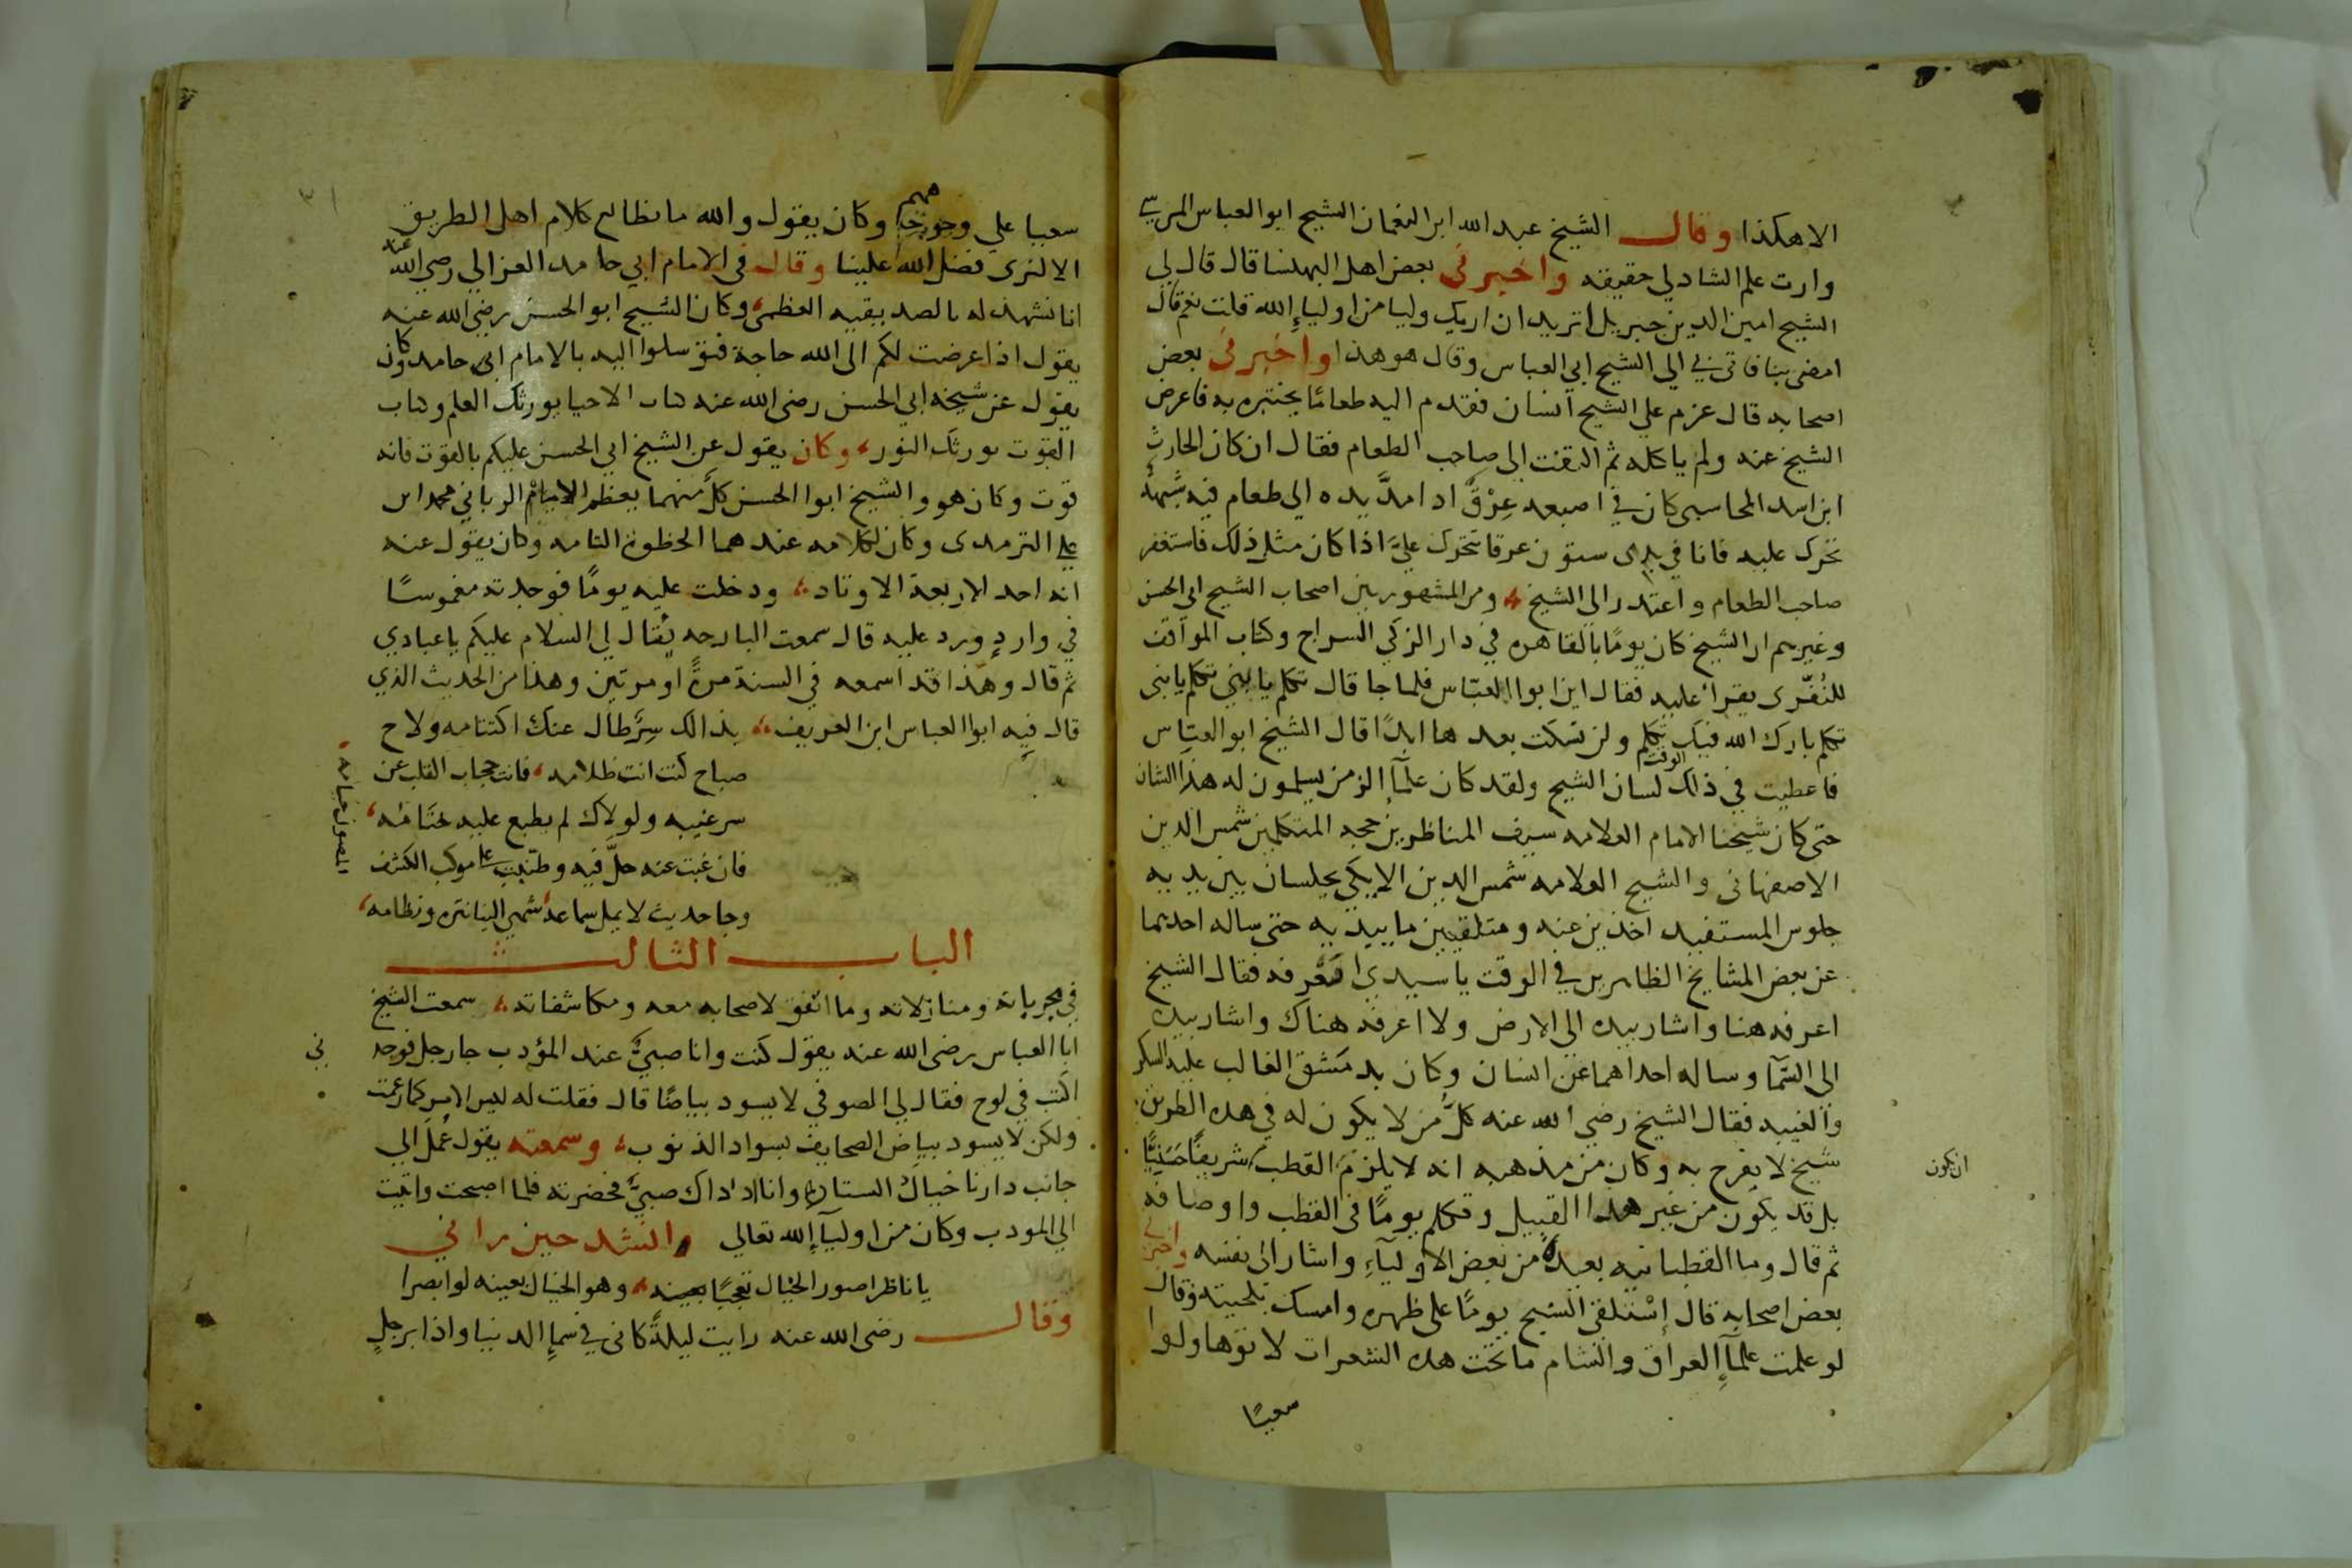 الاهكذا وقال الشيخ عبد الله ابن النعمان الشيخ ابو العباس المرسي
وارت علم الشادلي حقيقه واخبرني بعض اهل البهنسا قال قال لي
الشيخ امين الدين جبريل اتريد ان اريك وليا من اولياء الله قلت نعم قال
امضى بنا فاتى بي الى الشيخ ابي العباس وقال هو هذا واخبرني بعض
اصحابه قال عزم علي الشيخ انسان فقدم اليه طعامًا يختبره به فاعرض
الشيخ عنه ولم ياكله ثم التفت الى صاحب الطعام فقال ان كان الحارث
ابن اسد المحاسبي كان في اصبعه عِرْق ادا مدَّ يده الي طعام فيه شبهةٌ
تحرك عليه فانا في يدى ستون عرقا تتحرك عليَّ اذا كان مثل ذلك فاستغفر
صاحب الطعام واعتدر الى الشيخ ومن المشهور بين اصحاب الشيخ ابى الحسن
وغيرهم ان الشيخ كان يومًا بالقاهره في دار الزكي السراج وكتاب المواقف
للنُفّرى يقرأ عليه فقال اين ابوا العبّاس فلما جا قال تكلم يا بُني تكلم يا بنى
تكلم بارك الله فيك تكلم ولن تسكت بعد هاابدًا قال الشيخ ابو العبّاس
فاعطيت في ذلك الوقت لسان الشيخ ولقد كان علمآء الزمن يسلمون له هذا الشان
حتى كان شيخنا الامام العلامه سيف المناظرين حجه المتكلمين شمس الدين
الاصفهانى والشيخ العلامه شمس الدين الايكي يجلسان بين يديه
جلوس المستفيد آخذين عنه ومتلقيين ما يبديه حتى ساله احدهما
عن بعض المشايخ الظاهرين في الوقت يا سيدي اتعرفه فقال الشيخ
اعرفه هنا واشار بيده الى الارض ولا اعرفه هناك واشار بيده
الى السّمآ وساله احداهما عن انسان وكان بدمَشق الغالب عليه السكر
والغيبه فقال الشيخ رضي الله عنه كلُّ من لا يكون له في هذه الطريق
شيخ لا يفرح به وكان من مذهبه انه لا يلزم القطب شريفًا حَسَنيًّا
ان يكون
بل قد يكون من غير هدا القبيل وتكلم يومًا فى القطب واوصافه
ثم قال وما القطبانيه بعيده من بعض الاوليآء واشار الى نفسه واخبرني
بعض اصحابه قال إسْتلقى الشيخ يومًا على ظهره وامسك بلحيته وقال
لو علمت علمآء العراق والشام ما تحت هذه الشعرات لاتوها ولوا
سعيًا
سعيا علي وجوههم وكان يقول والله ما نطالع كلام اهل الطريق
الا لنرى فضل الله علينا وقال في الامام ابي حامد الغزالي رضي الله عنه
انا نشهد له بالصديقيه العظمى وكان الشيخ ابو الحسن رضي الله عنه
يقول اذا عرضت لكم الى الله حاجة فتوسلوا اليه بالامام ابي حامد وكان
يقول عن شيخه ابي الحسن رضى الله عنه كتاب الاحيا يورثك العلم وكتاب
القوت يورثك النور وكان يقول عن الشيخ ابي الحسن عليكم بالقوت فانه
قوت وكان هو والشيخ ابوا الحسن كلٌّ منهما يعظم الامام الرباني محمد ابن
علي الترمدى وكان لكلامه عند هما الحظوة التامه وكان يقول عنه
انه احد الاربعة الاوتاد ودخلت عليه يومًا فوجدته مغموسًا
في واردٍ ورد عليه قال سمعت البارحه يُقال لي السلام عليكم يا عبادي
ثم قال وهذا قد اسمعه في السنة مرةً او مرتين وهذا من الحديث الذي
قال فيه ابوا العباس ابن العريف بذالك سِرٌّ طال عنك اكتتامه ولاح
صباح كنت انت ظلامه فانت حجاب القلب عن
سر غيبه ولولاك لم يطبع عليه ختامُه
فان غبت عنه حلَّ فيه وطنّبت على موكب الكشف
المصون خيامه
وجا حديث لا يمل سماعه شهي الينا نثره ونظامه
الباب الثالث
في مجرياته ومنازلاته وما اتفق لاصحابه معه ومكاشفاته سمعت الشيخ
ابا العباس رضى الله عنه يقول كنت وانا صبيٌّ عند المؤدب جا رجل فوجد
ني
اكتب في لوح فقال لي الصوفي لا يسود بياضًا قال فقلت له ليس الامر كما زعمت
ولكن لا يسود بياض الصحايف بسواد الذنوب وسمعته يقول عُمل الي
جانب دارنا خيالُ الستاره وانا اد اك صبيٌّ فحضرته فلما اصبحت واتيت
الي المودب وكان من اوليآء الله تعالي وانشد حين راني
يا ناظرا صور الخيال تعجبًا وهو الخيال بعينه لو ابصرا
وقال رضى الله عنه رايت ليلةً كاني في سماء الدنيا واذا برجلٍ